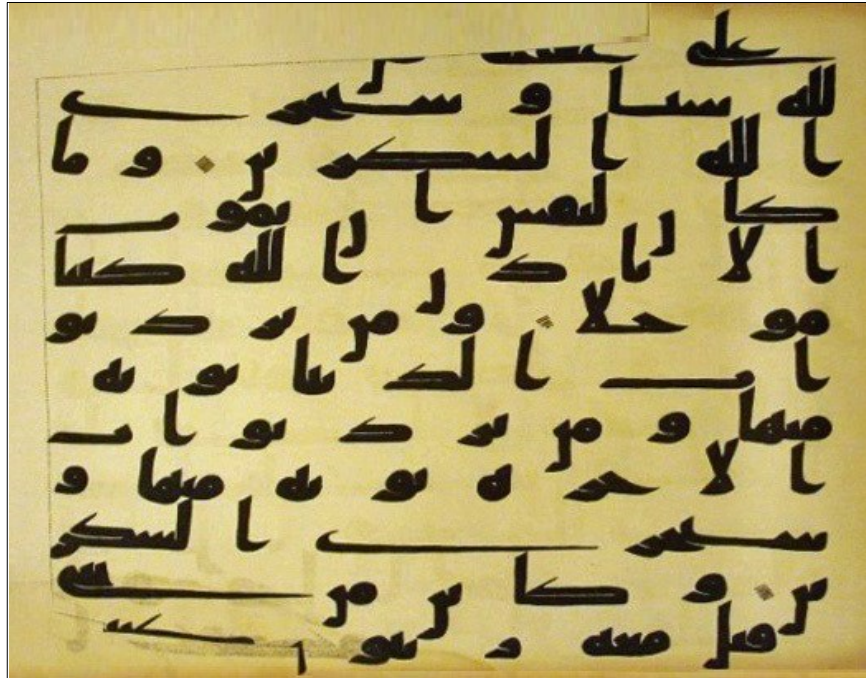 على عقبيه
لله شيا و سيجزى
ا لله ا لشكرين و ما
كان لنفس ان تموت
ا لا باذن ا لله كتبا
موجلا و من يرد ثو
ا ب ا لدنيا نوته
منها و من يرد ثوا ب
ا لاخره نوته منها و
سنجزى ا لشكر
ين و كاين من نبى
قتل معه ربيون كثير